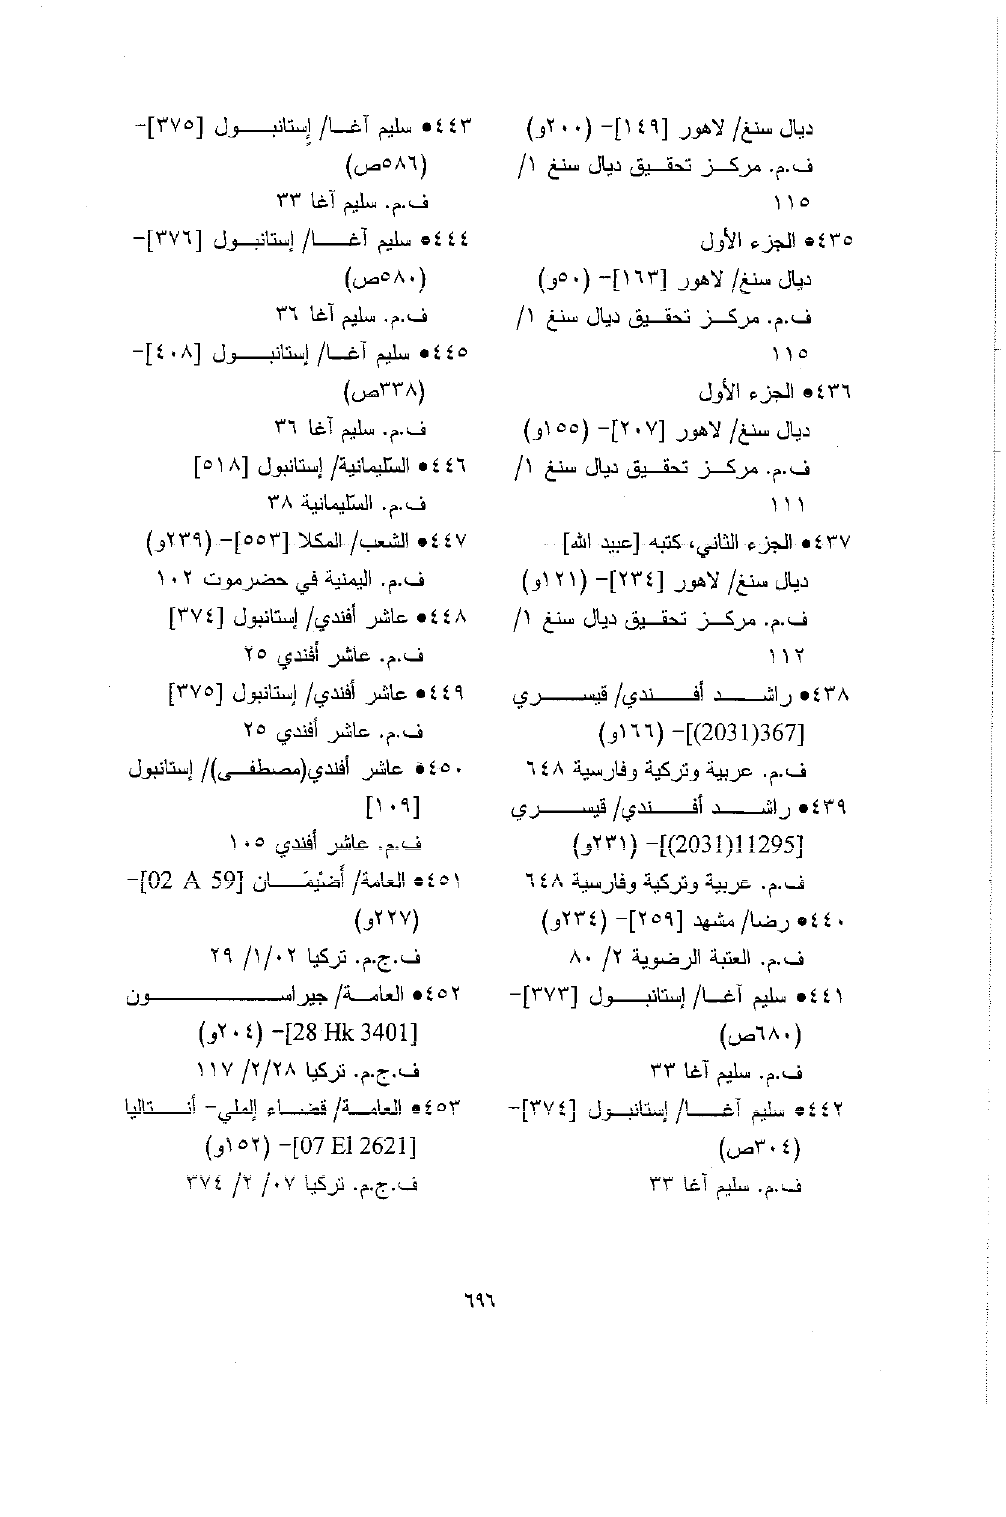 ديال سنغ/ لاهور [١٤٩]- (٢٠٠و)
ف.م. مركـــز تحقـــيق ديال سنغ ١/
١١٥
٤٣٥• الجزء الأول
ديال سنغ/ لاهور [١٦٣]- (٥٠و)
ف.م. مركـــز تحقـــيق ديال سنغ ١/
١١٥
٤٣٦• الجزء الأول
ديال سنغ/ لاهور [٢٠٧]- (١٥٥و)
ف.م. مركـــز تحقـــيق ديال سنغ ١/
١١١
٤٣٧• الجزء الثاني، كتبه [عبيد الله]
ديال سنغ/ لاهور [٢٣٤]- (١٢١و)
ف.م. مركـــز تحقـــيق ديال سنغ ١/
١١٢
٤٣٨• راشـــد أفـــندي/ قيســـري
[367(2031)]- (١٦٦و)
ف.م. عربية وتركية وفارسية ٦٤٨
٤٣٩• راشـــد أفـــندي/ قيســـري
[11295(2031)]- (٢٣١و)
ف.م. عربية وتركية وفارسية ٦٤٨
٤٤٠• رضا/ مشهد [٢٥٩]- (٢٣٤و)
ف.م. العتبة الرضوية ٢/ ٨٠
٤٤١• سليم آغـــا/ إستانبـــول [٣٧٣]-
(٦٨٠ص)
ف.م. سليم آغا ٣٣
٤٤٢• سليم آغـــا/ إستانبـــول [٣٧٤]-
(٣٠٤ص)
ف.م. سليم آغا ٣٣
٤٤٣• سليم آغـــا/ إستانبـــول [٣٧٥]-
(٥٨٦ص)
ف.م. سليم آغا ٣٣
٤٤٤• سليم آغـــا/ إستانبـــول [٣٧٦]-
(٥٨٠ص)
ف.م. سليم آغا ٣٦
٤٤٥• سليم آغـــا/ إستانبـــول [٤٠٨]-
(٣٣٨ص)
ف.م. سليم آغا ٣٦
٤٤٦• السليمانية/ إستانبول [٥١٨]
ف.م. السليمانية ٣٨
٤٤٧• الشعب/ المكلا [٥٥٣]- (٢٣٩و)
ف.م. اليمنية في حضرموت ١٠٢
٤٤٨• عاشر أفندي/ إستانبول [٣٧٤]
ف.م. عاشر أفندي ٢٥
٤٤٩• عاشر أفندي/ إستانبول [٣٧٥]
ف.م. عاشر أفندي ٢٥
٤٥٠• عاشر أفندي(مصطفـــى)/ إستانبول
[١٠٩]
ف.م. عاشر أفندي ١٠٥
٤٥١• العامة/ أَضَيْمَـــان [02 A 59]-
(٢٢٧و)
ف.ج.م. تركيا ٠٢/ ١/ ٢٩
٤٥٢• العامـــة/ جيراســـون
[28 Hk 3401]- (٢٠٤و)
ف.ج.م. تركيا ٢٨/ ٢/ ١١٧
٤٥٣• العامـــة/ قضـــاء إلملي- أنـــتاليا
[07 El 2621]- (١٥٢و)
ف.ج.م. تركيا ٠٧/ ٢/ ٣٧٤
٦٩٦